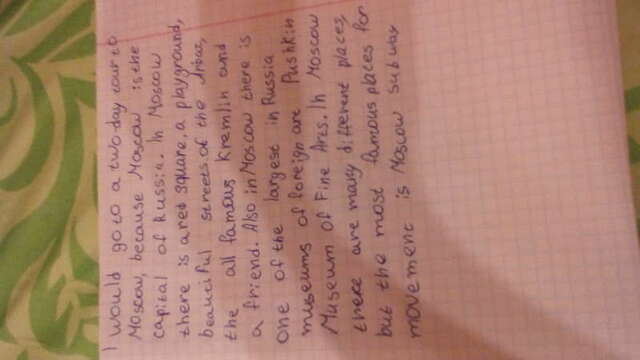 I would go to a two-day tour to
Moscow, because Moscow is the
capital of Russia. In Moscow
there is a red square, a playground,
beautiful streets of the Arbat,
the all famous Kremlin and
a friend. Also in Moscow there is
one of the largest in Russia
museums of foreign are Pushkin
Museum of Fine Arts. In Moscow
there are many different places,
but the most famous places for
movement is Moscow subway